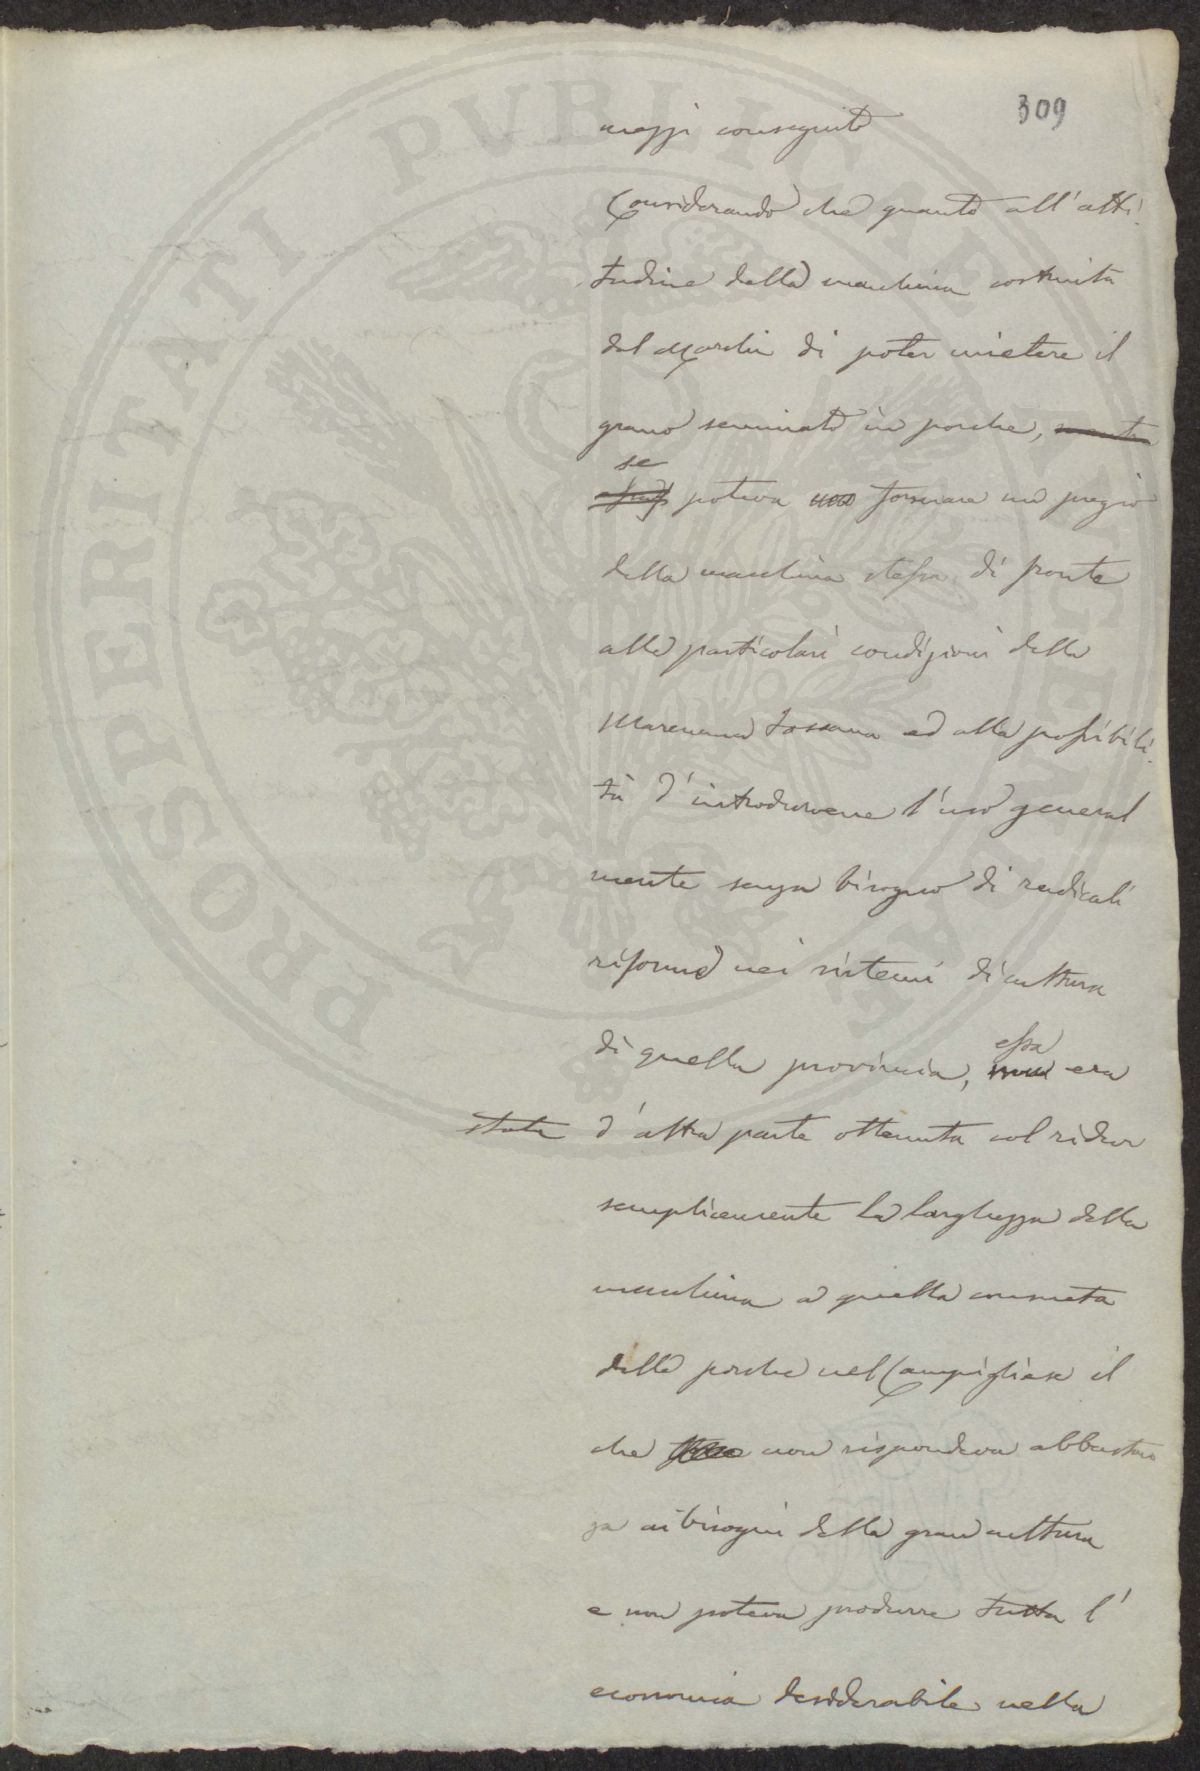 309
mezzi conseguito
Considerando che quanto all'atti-
tudine della macchina costruita
dal Marchi di poter mietere il
grano seminato in porche,
se
poteva formare un pregio
della macchina stessa di fronte
alle particolari condizioni della
Maremma Toscana ed alla possibili-
tà d'introdurvene l'uso general
mente senza bisogno di radicali
riforme nei sistemi di cultura
essa
di quella provincia, non era
stata d'altra parte ottenuta col ridur
semplicemente la larghezza della
macchina a quella consueta
delle porche nel Campigliese il
che non rispondeva abbastan
za ai bisogni della gran cultura
e non poteva produrre tutta l'
economia desiderabile nella
PROSPERITATI PVBLICAE AVGENDAE